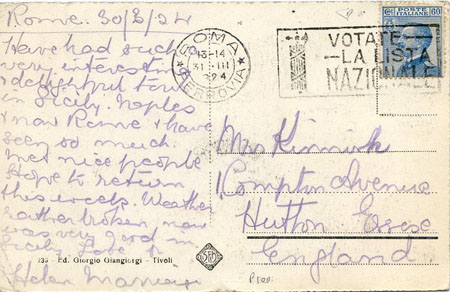 Rome. 30/3/24
Have had such
very interesting
& delightful tour
in Sicily. Naples
& now Rome & have
seen so much
met nice people
Hope to return
this week. Weather
rather broken now
was very good in
Sicily. Love to
Helen
ROMA
13-14
31·III
24
FERROVIA
VOTATE
—LA LISTA
NAZIONALE
POSTE ITALIANE
60
Mrs Kinnick
Compton Avenue
Hutton Essex
England
Ed. Giorgio Giangiorgi - Tivoli